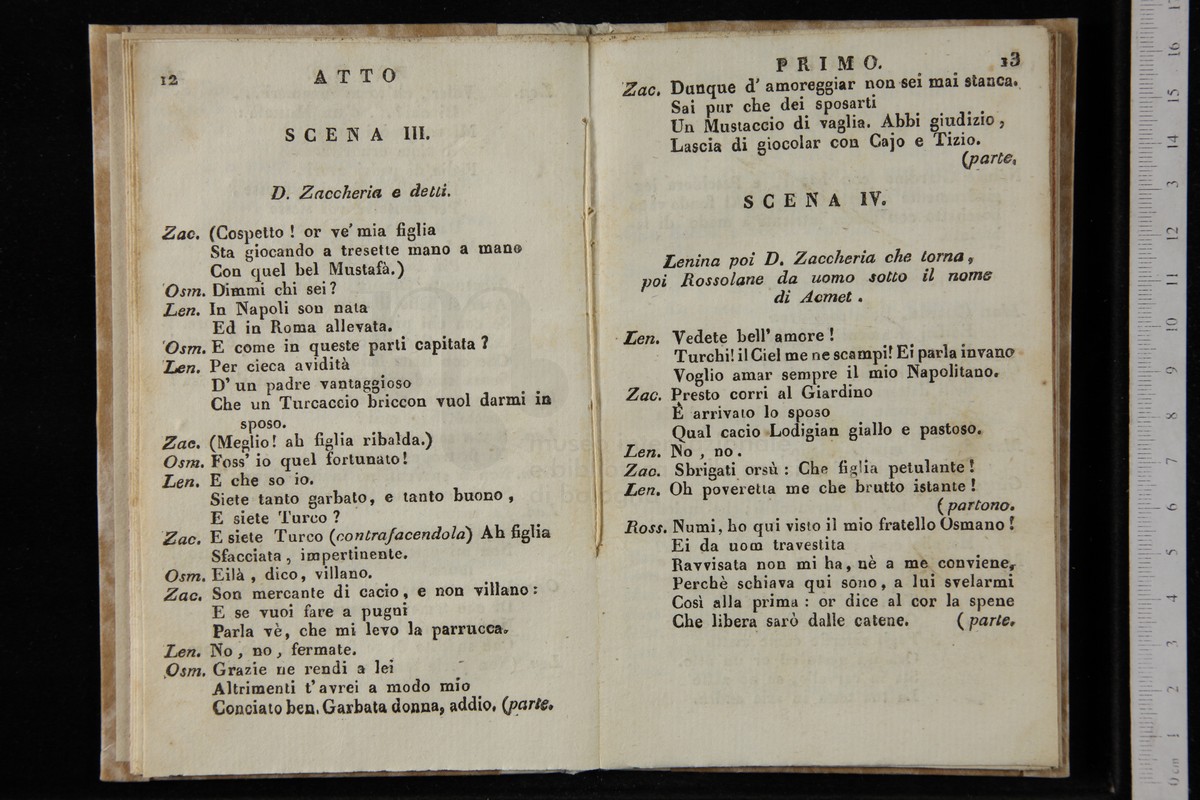 12 ATTO
SCENA III.
D. Zaccheria e detti.
Zac. (Cospetto ! or ve' mia figlia
Sta giocando a tresette mano a mano
Con quel bel Mustafà.)
Osm. Dimmi chi sei ?
Len. In Napoli son nata
Ed in Roma allevata.
Osm. E come in queste parti capitata ?
Len. Per cieca avidità
D' un padre vantaggioso
Che un Turcaccio briccon vuol darmi in
sposo.
Zac. (Meglio! ah figlia ribalda.)
Osm. Foss' io quel fortunato!
Len. E che so io.
Siete tanto garbato, e tanto buono ,
E siete Turco ?
Zac. E siete Turco (contrafacendola) Ah figlia
Sfacciata , impertinente.
Osm. Eilà , dico, villano.
Zac. Son mercante di cacio, e non villano :
E se vuoi fare a pugni
Parla vè, che mi levo la parrucca.
Len. No , no , fermate.
Osm. Grazie ne rendi a lei
Altrimenti t'avrei a modo mio
Conciato ben. Garbata donna, addio. (parte.
PRIMO. 13
Zac. Dunque d' amoreggiar non sei mai stanca.
Sai pur che dei sposarti
Un Mustaccio di vaglia. Abbi giudizio ,
Lascia di giocolar con Cajo e Tizio.
(parte.
SCENA IV.
Lenina poi D. Zaccheria che torna ,
poi Rossolane da uomo sotto il nome
di Acmet .
Len. Vedete bell' amore !
Turchi! il Ciel me ne scampi! Ei parla invano
Voglio amar sempre il mio Napolitano.
Zac. Presto corri al Giardino
È arrivato lo sposo
Qual cacio Lodigian giallo e pastoso.
Len. No , no .
Zac. Sbrigati orsù : Che figlia petulante !
Len. Oh poveretta me che brutto istante !
(partono.
Ross. Numi, ho qui visto il mio fratello Osmano !
Ei da uom travestita
Ravvisata non mi ha, nè a me conviene,
Perchè schiava qui sono, a lui svelarmi
Così alla prima : or dice al cor la spene
Che libera sarò dalle catene. (parte.